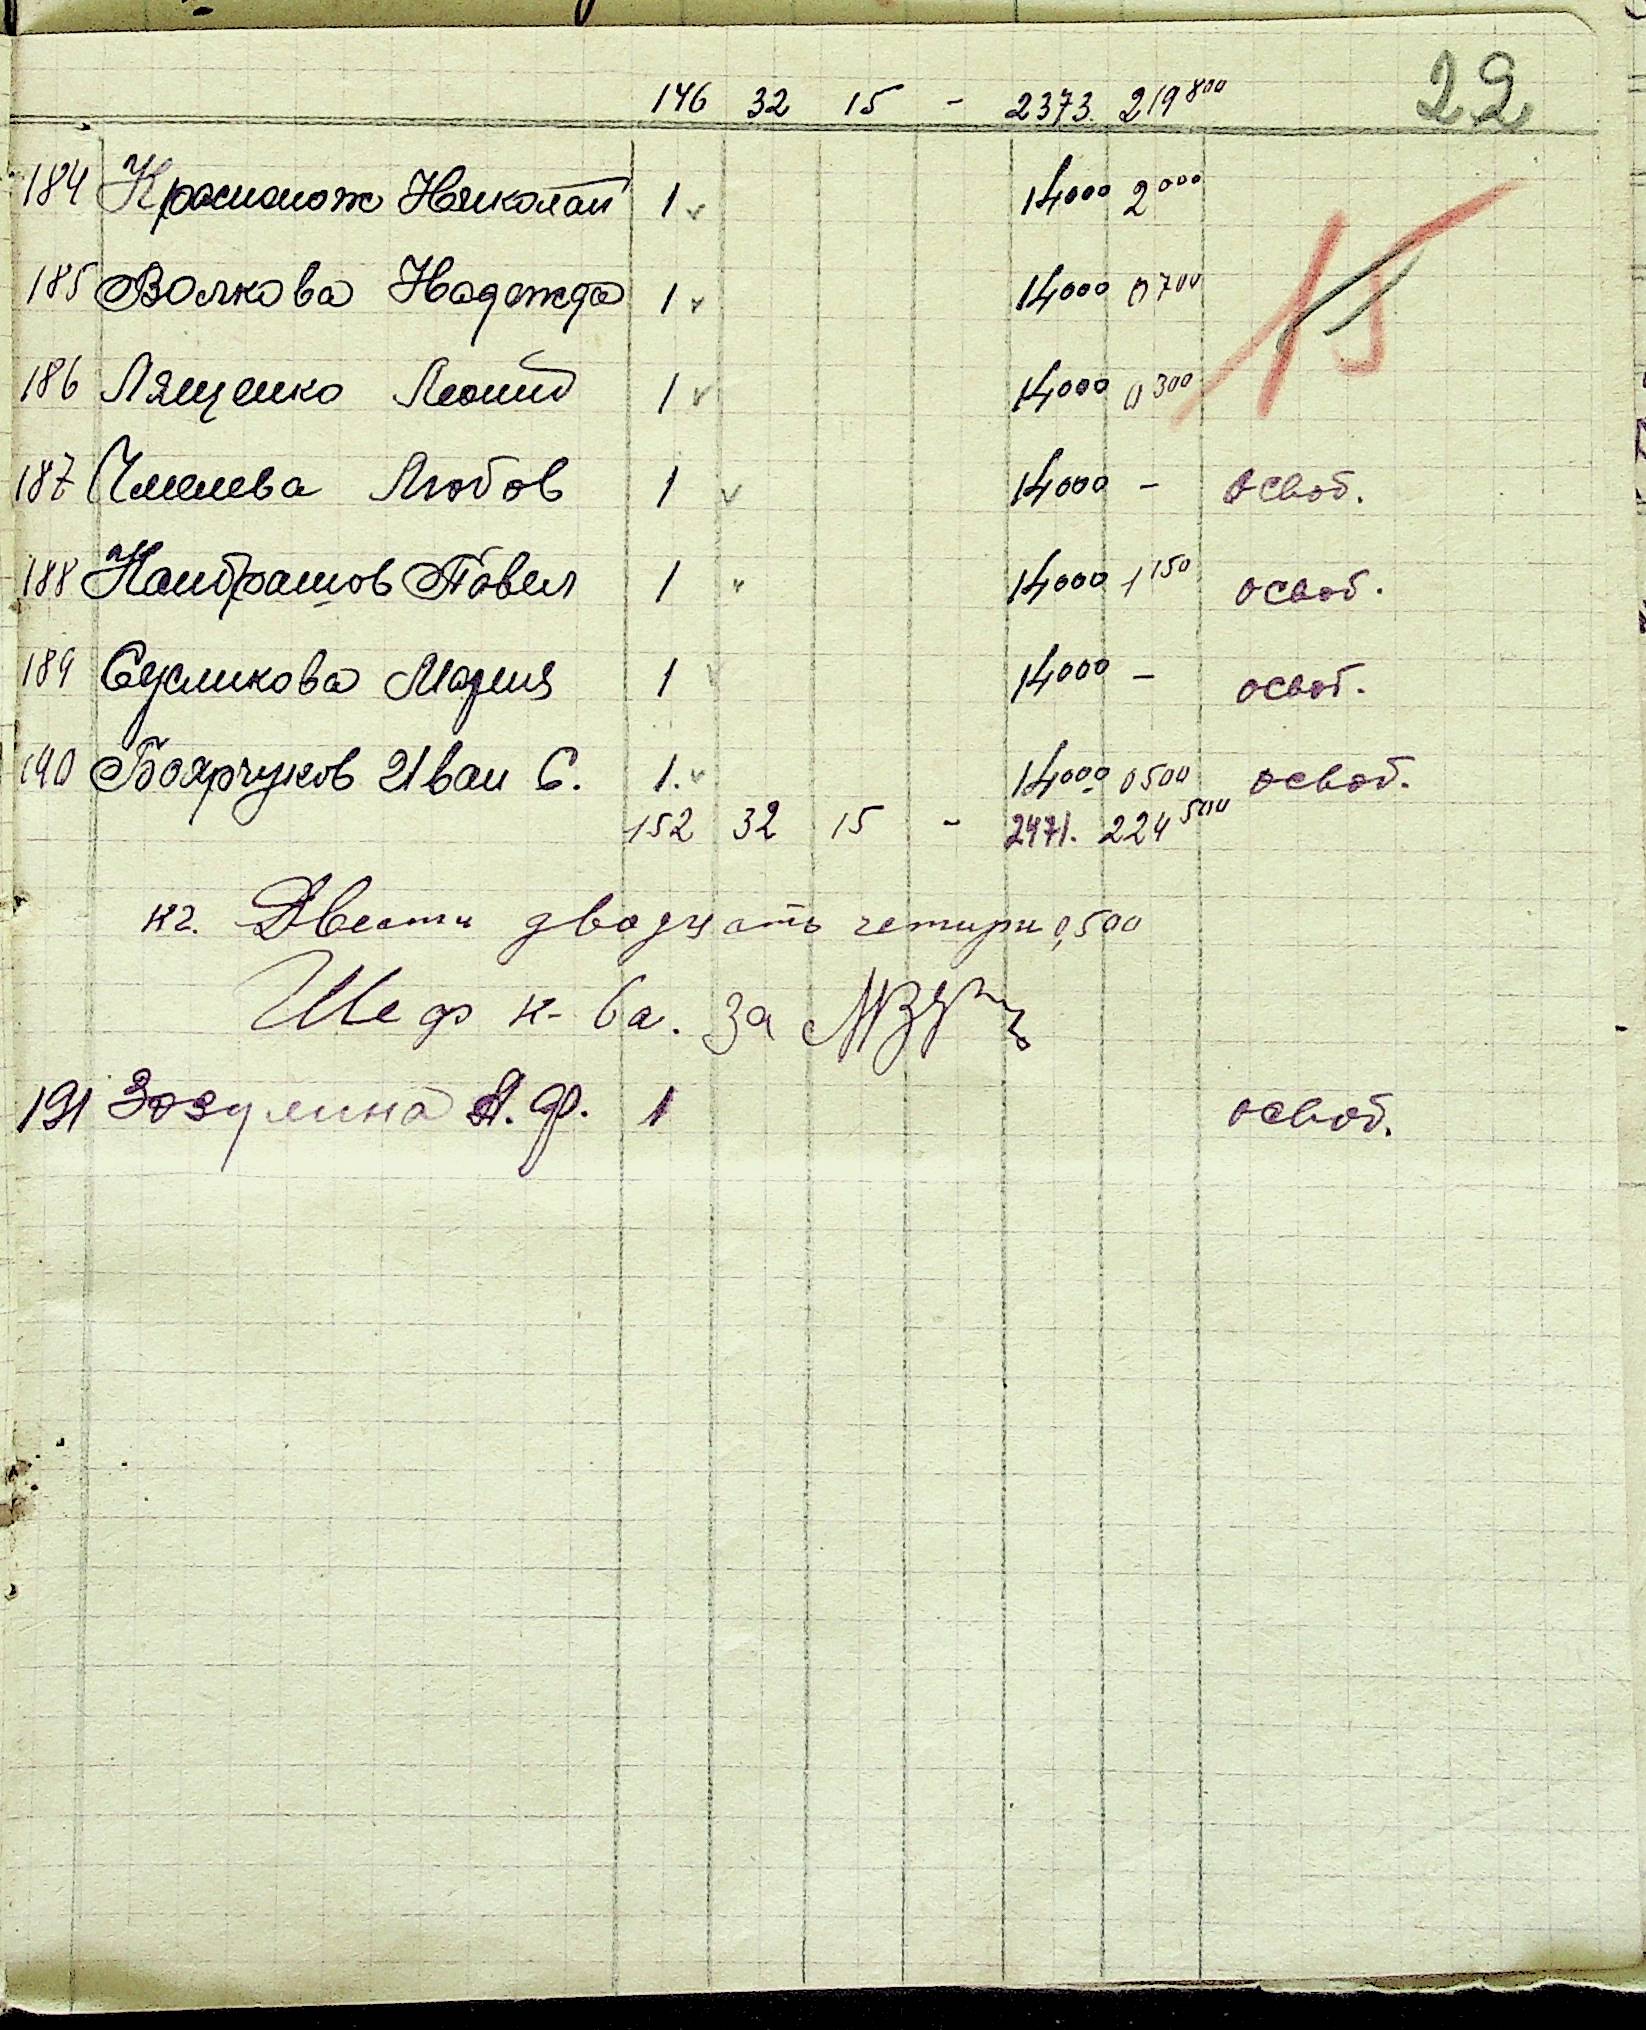 22
146 32 15 - 2373. 219 800
184 Красионож Николай 1 v 14000 2000
185 Волкова Надежда 1 v 14000 0700
15
186 Лященко Леонид 1 v 14000 0300
187 Чмелева Любов 1 v 14000 - освоб.
188 Кандрашов Павел 1 v 14000 1150 освоб.
189 Сусликова Мария 1 v 14000 - освоб.
190 Боярчуков Иван С. 1. v 14000 0500 освоб.
152 32 15 - 2471. 224 500
кг. Двести двадцать четири 0,500
Шеф к-ва. За
191 Зозулина А. Ф. 1 освоб.